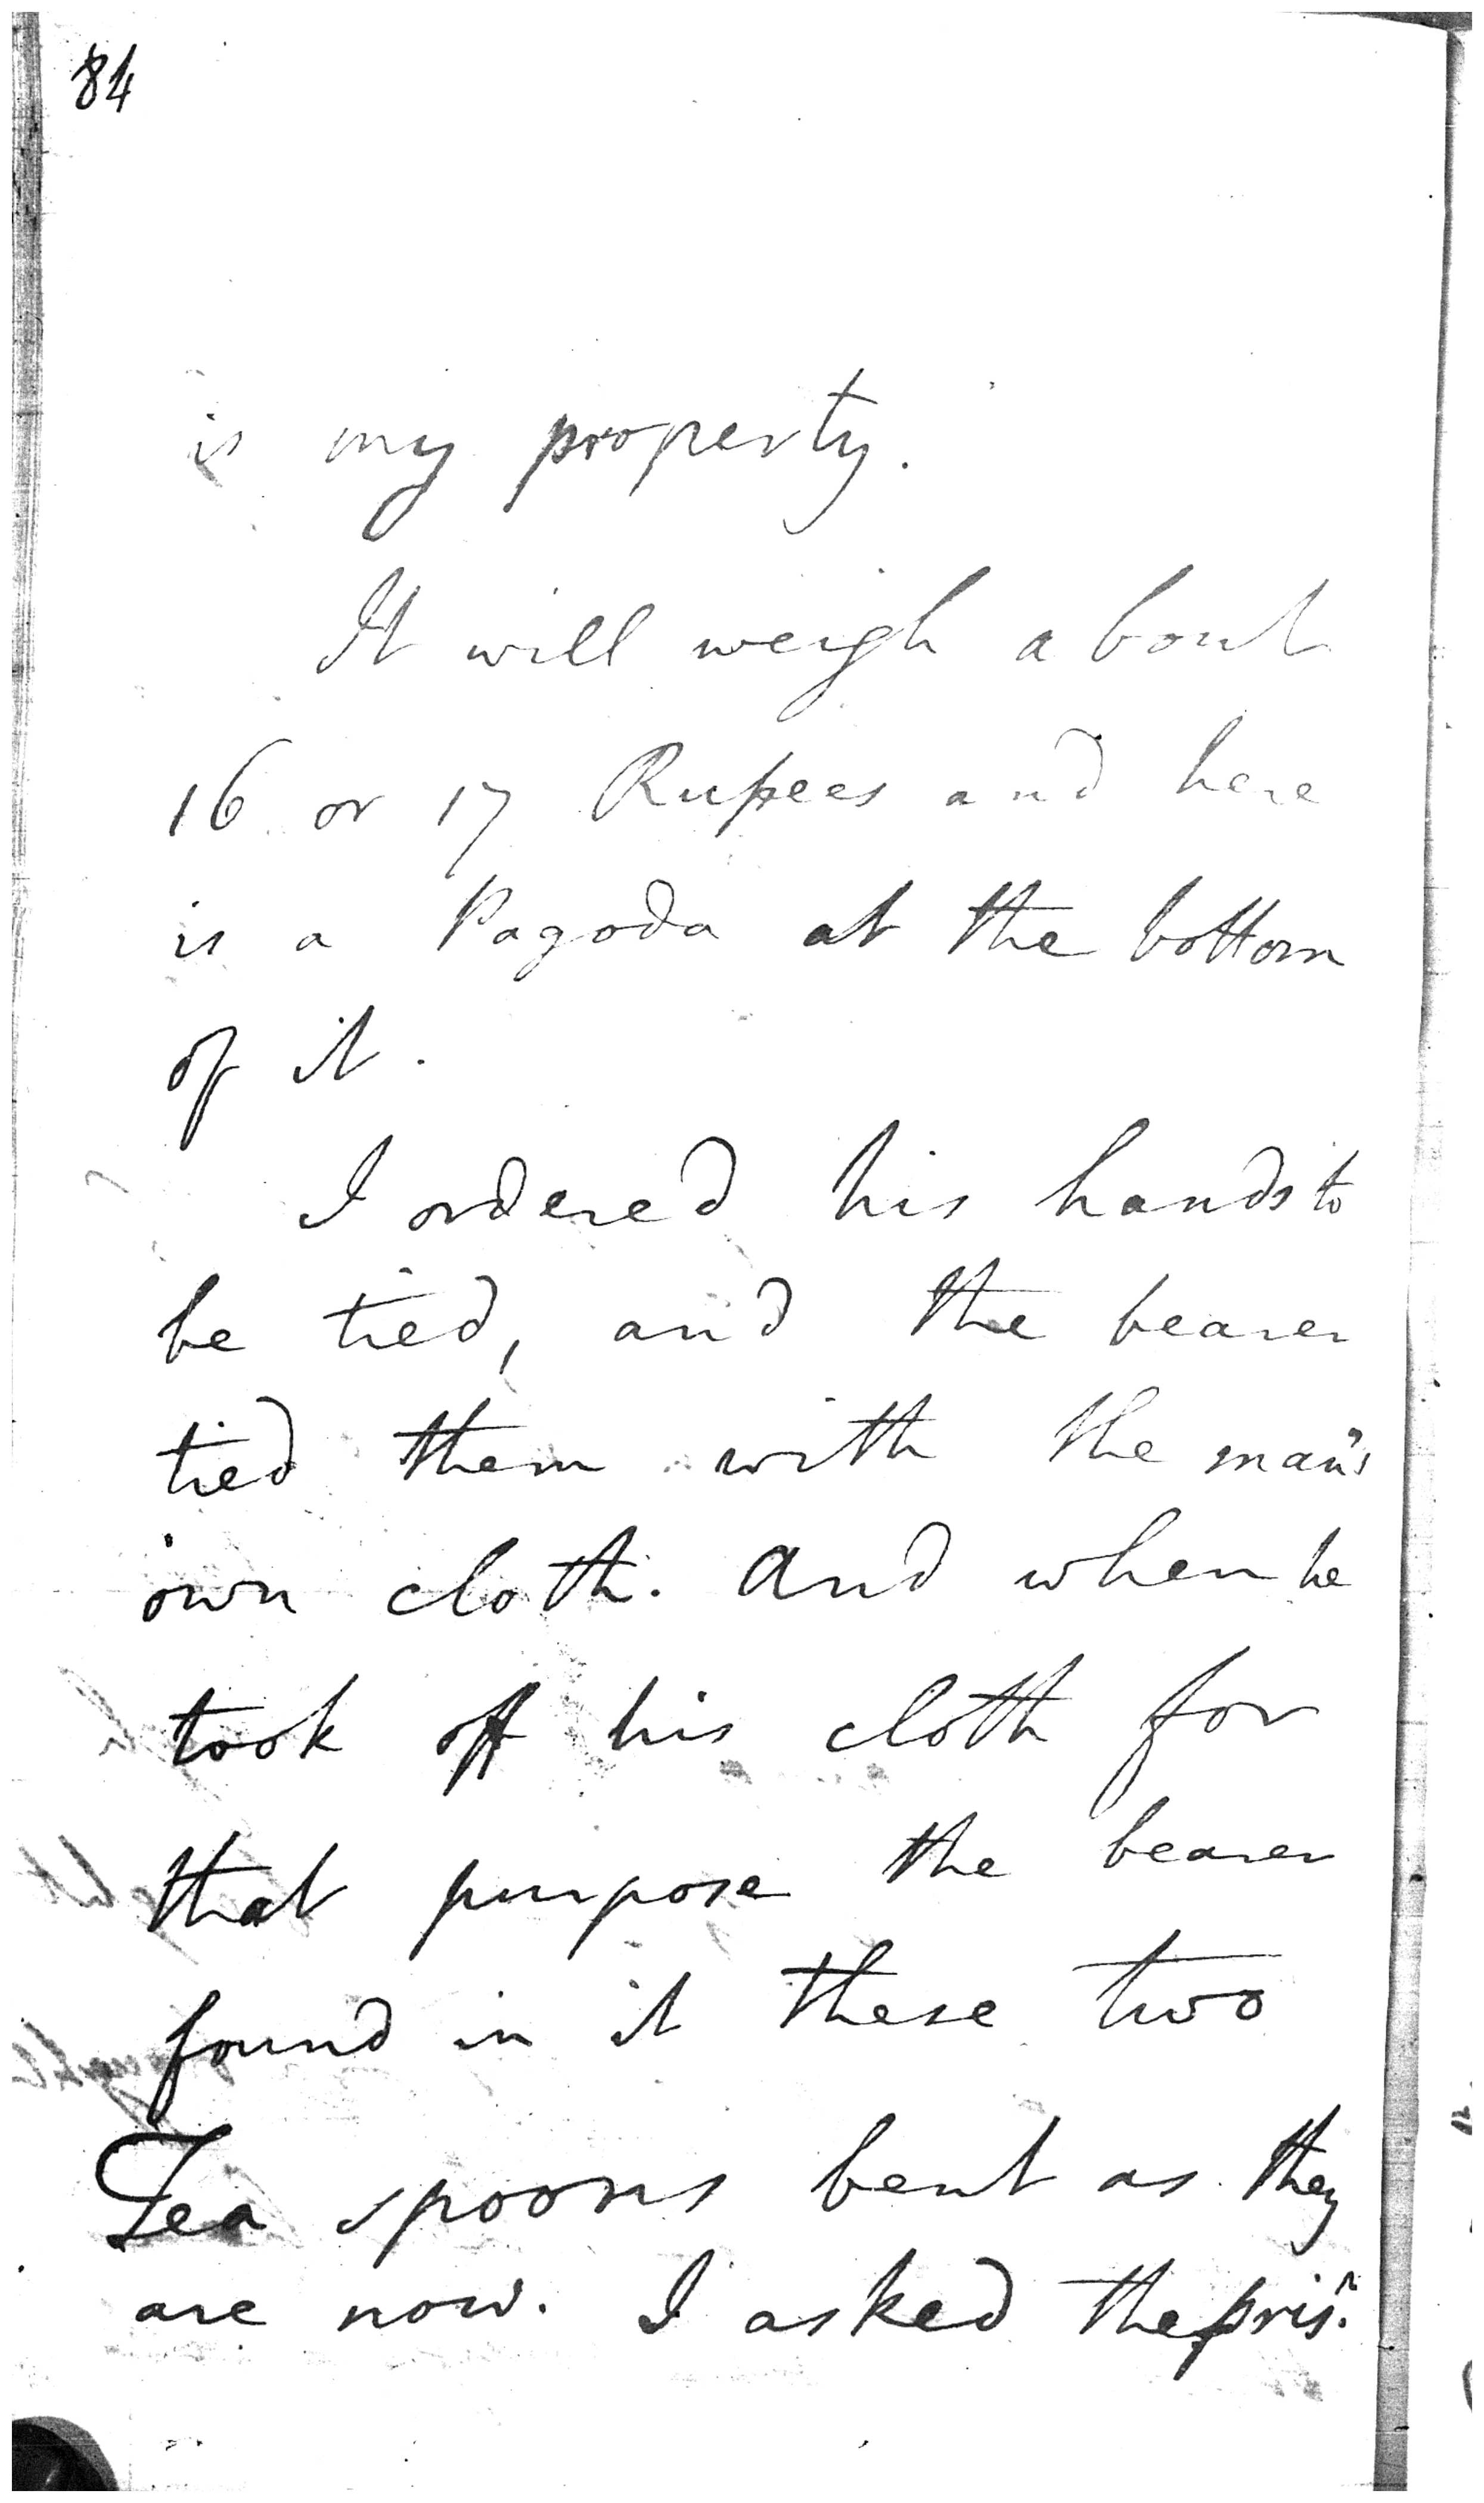 84
is my property.
It will weigh about
16 or 17 Rupees and here
is a Pagoda at the bottom
of it.
I ordered his hands to
be tied, and the bearer
tied them with the man's
own cloth. And when he
took off his cloth for
that purpose the bearer
found in it these two
Tea spoons bent as they
are now. I asked the prisr.